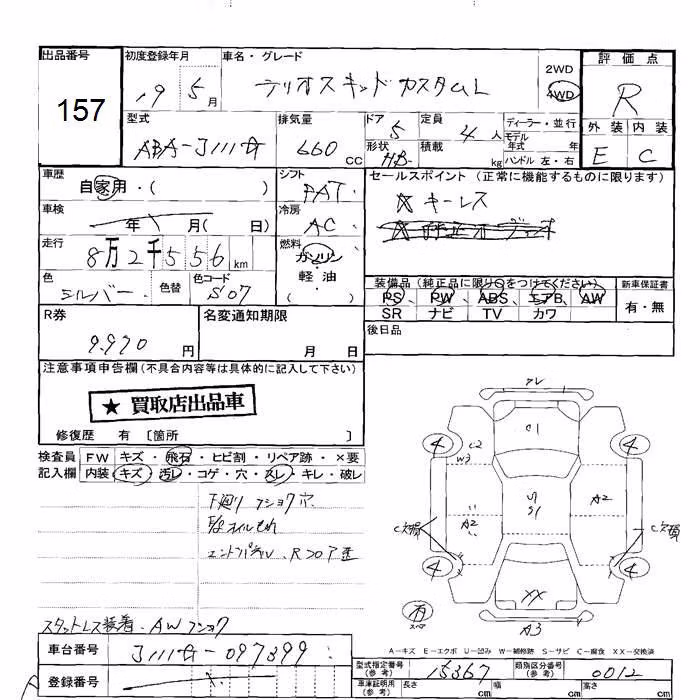 出品番号 初度登録年月 車名・グレード 2WD 4WD 評価点
157 19 5月 テリオスキッド カスタムL R
型式 排気量 ドア 5 定員 4人 ディーラー・並行 外装 内装
ABA-J111G 660cc 形状 HB 積載 kg モデル年式 年 E C
ハンドル 左・右
車歴 シフト セールスポイント (正常に機能するものに限ります)
自家用・( ) FAT ☆キーレス
車検 冷房
年 月( 日) AC
走行 燃料
8万2千556km ガソリン
軽油
( )
色 色替 色コード 装備品 (純正品に限り○をつけてください) 新車保証書
シルバー S07 PS PW ABS エアB AW 有・無
SR ナビ TV カワ
R券 名変通知期限 後日品
9.970円 月 日
注意事項申告欄 (不具合内容等は具体的に記入して下さい)
★ 買取店出品車
修復歴 有 [箇所 ]
検査員 FW キズ・飛石・ヒビ割・リペア跡・×要
記入欄 内装 キズ・汚レ・コゲ・穴・スレ・キレ・破レ
下廻り フショク穴
E/gオイルもれ
エンドパネル、Rフロア歪
スタットレス装着・AWフショク
C1
C2
W3
A2
S1
A2
4
4
4
4
C欠損
C欠損
XX
A3
有
スペア
A-キズ E-エクボ U-凹み W-補修跡 S-サビ C-腐食 XX-交換済
車台番号 J111G-097399
登録番号
型式指定番号 (参考) 15367 類別区分番号 (参考) 0012
車庫証明用 (参考) 長さ cm 幅 cm 高さ cm